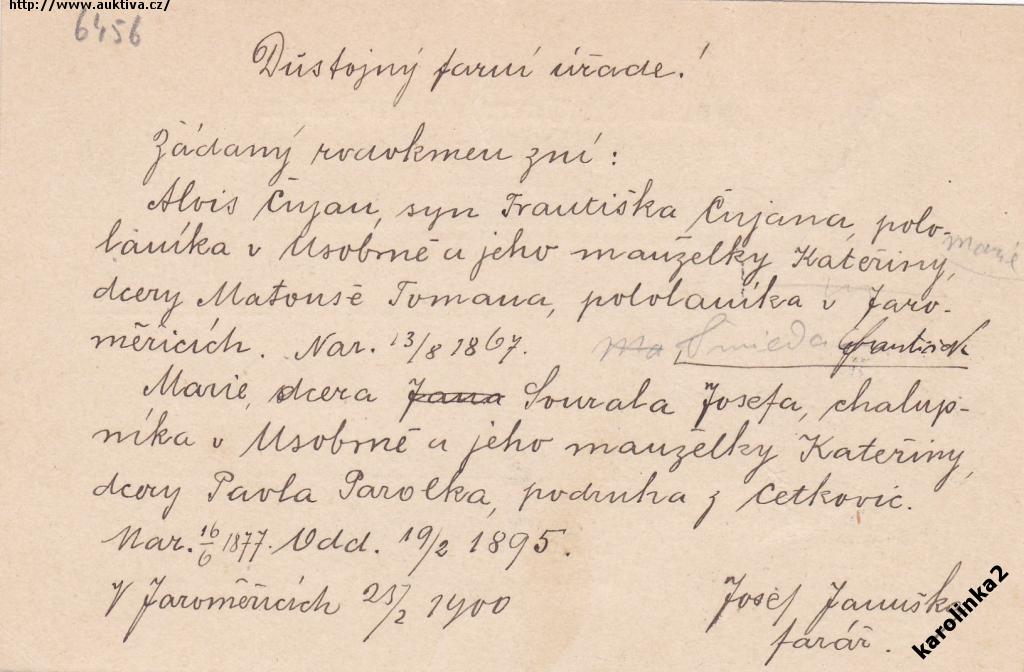 http://www.auktiva.cz/
6456
Důstojný farní úřade!
Žádaný rodokmen zní:
Alois Čujan, syn Františka Čujana, polo-
láníka v Usobrně a jeho manželky Kateřiny, Marie
dcery Matouše Tomana, pololaníka v Jaro-
měřicích. Nar. 13/8 1867. Ma František
Marie, dcera Jana Sourala Josefa, chalup-
níka v Usobrně a jeho manželky Kateřiny,
dcery Pavla Parolka, podruha z Cetkovic.
Nar. 16/6 1877. Odd. 19/2 1895.
V Jaroměřicích 23/2 1900
Josef Januška
farář.
karolinka2